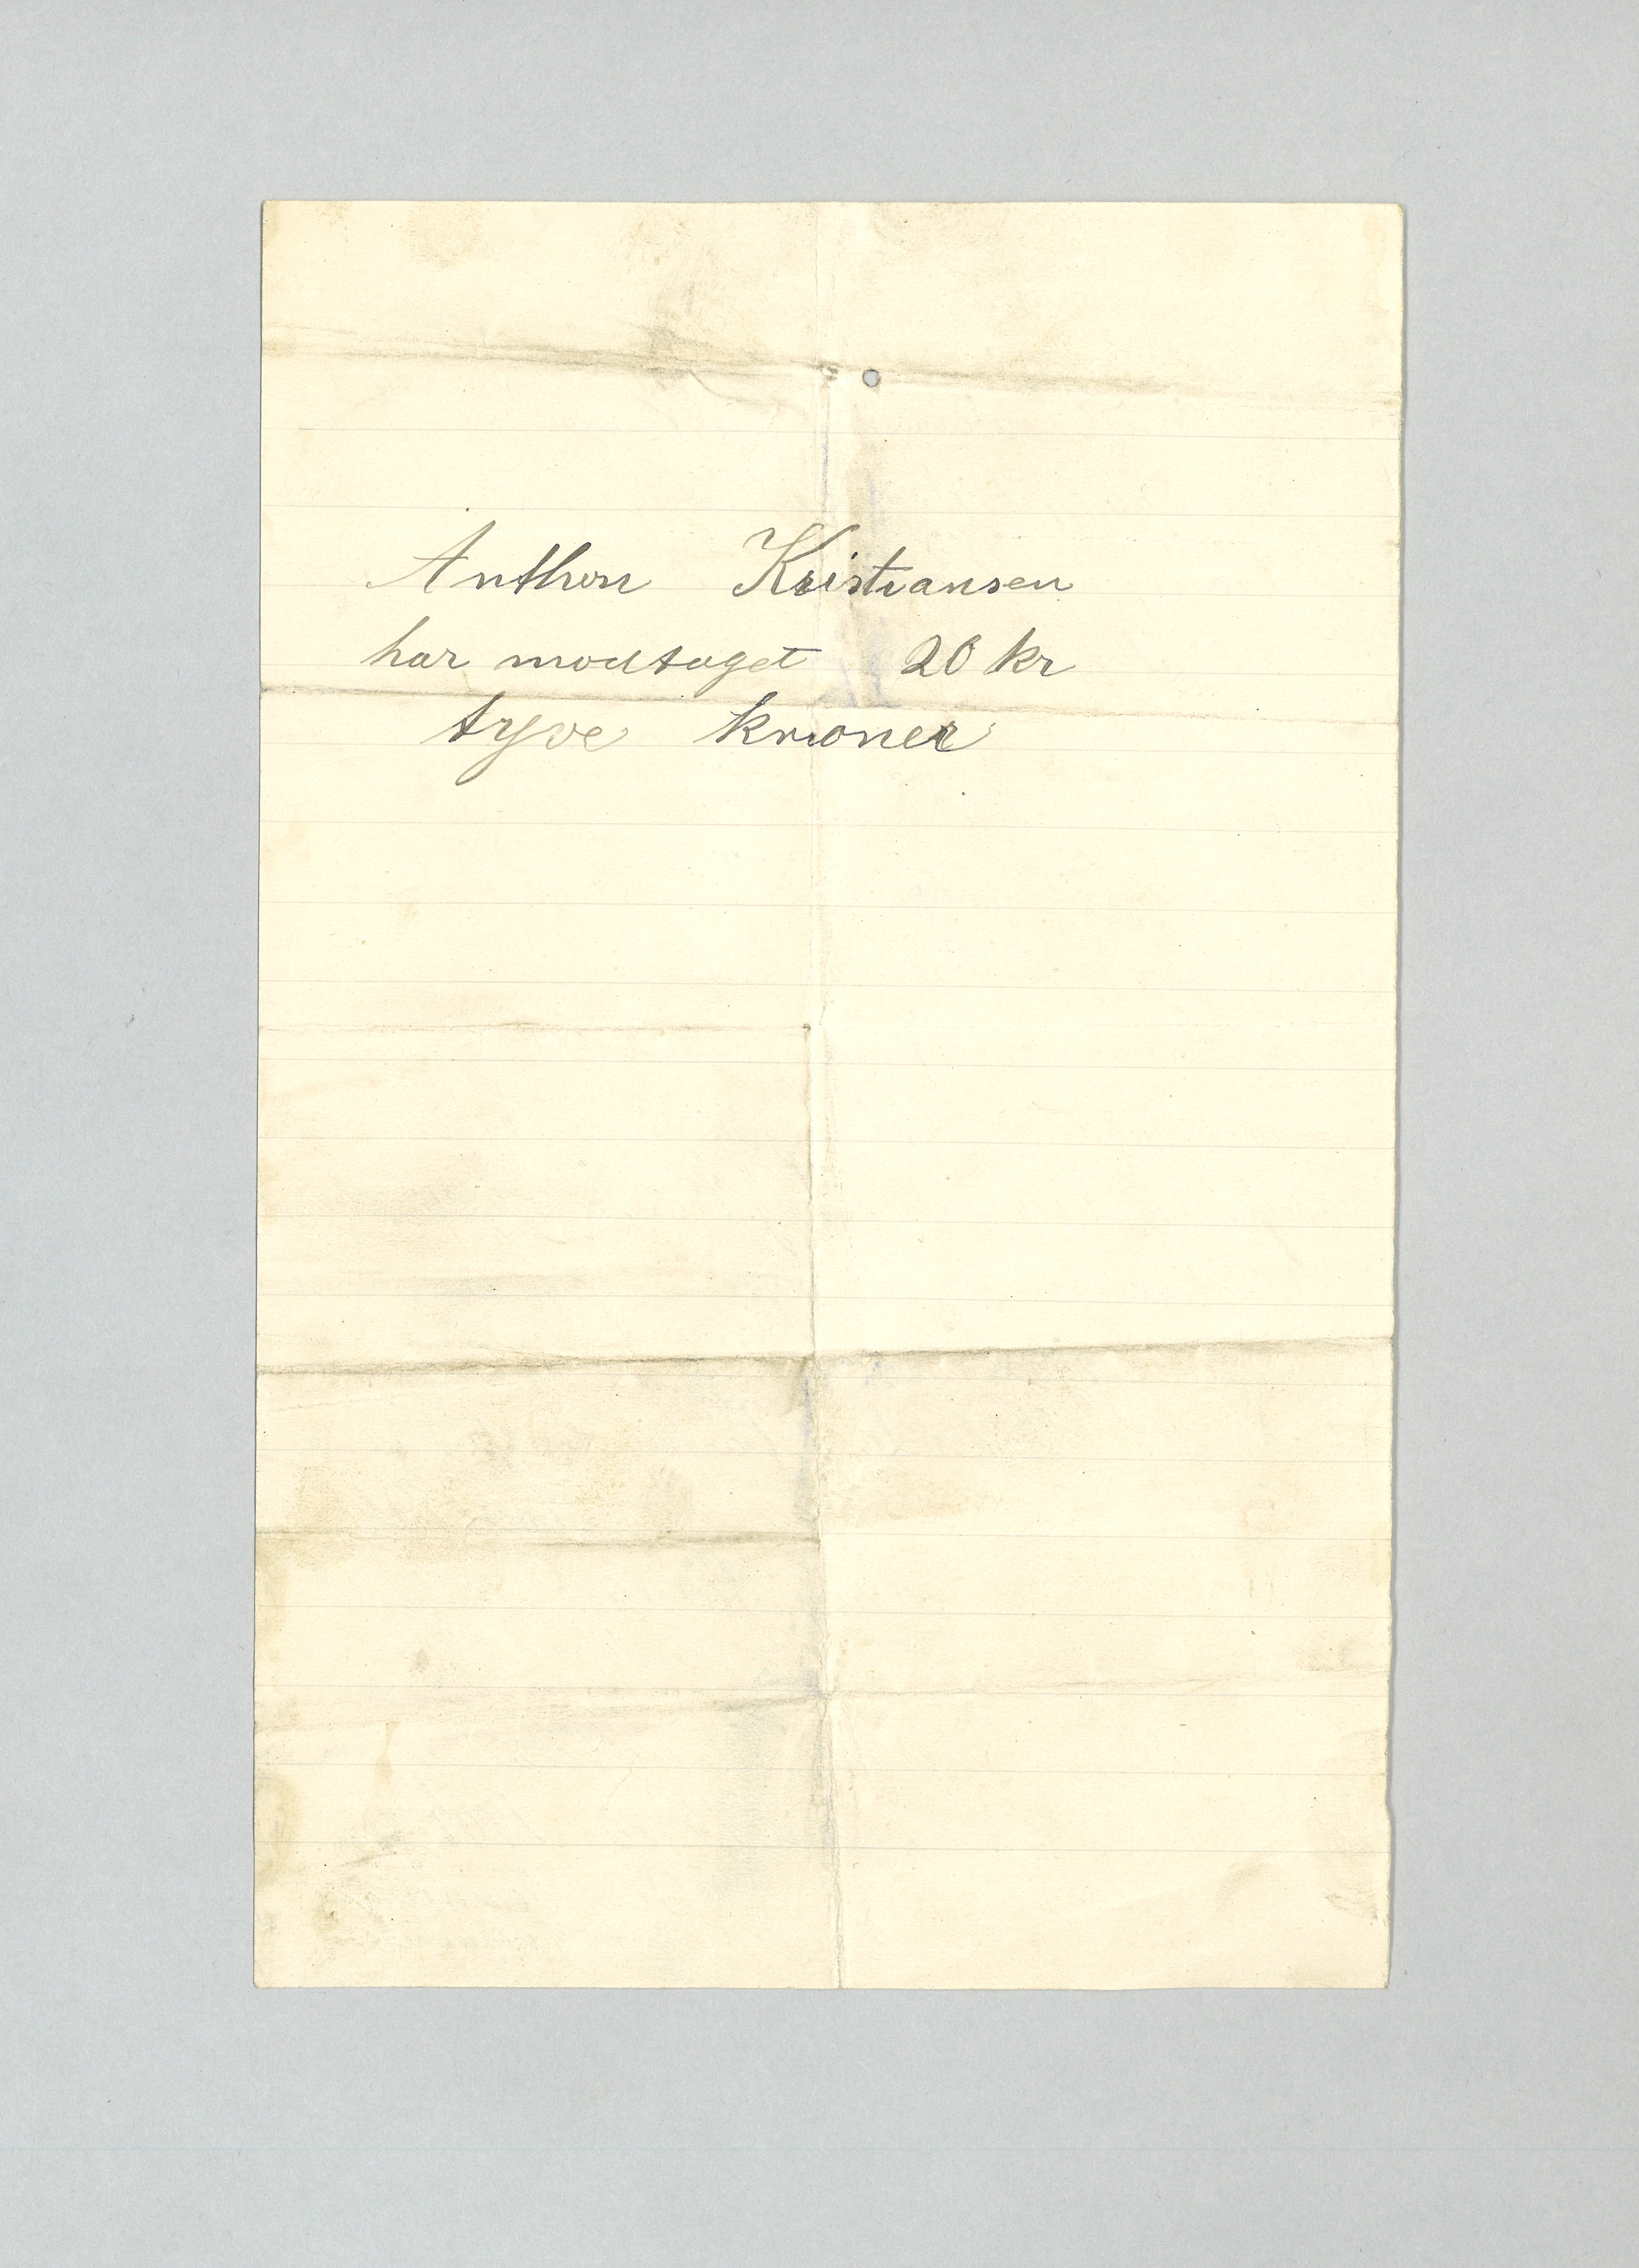 Anthon Kristiansen
har modtaget 20 kr
tyve kroner